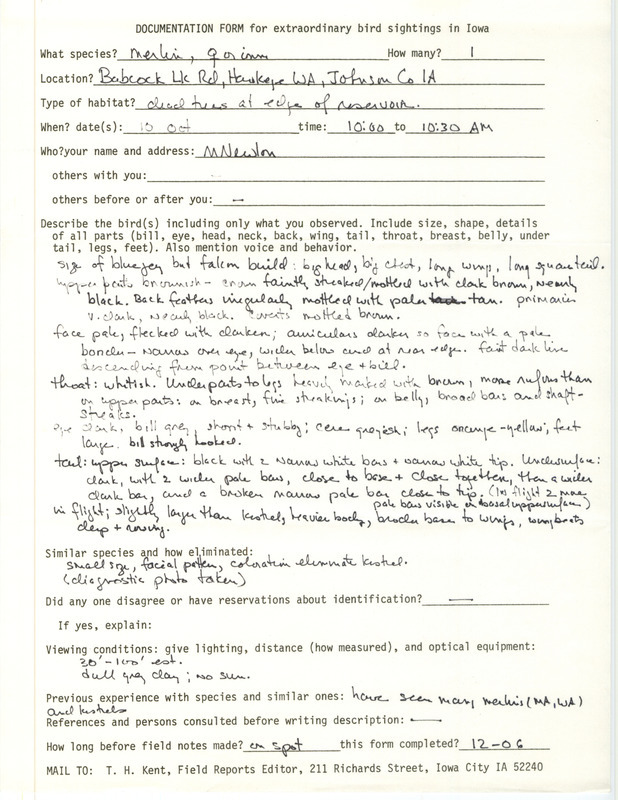 DOCUMENTATION FORM for extraordinary bird sightings in Iowa
What species? Merlin, ♀ or imm How many? 1
Location? Babcock Lk Rd, Hawkeye WA, Johnson Co IA
Type of habitat? dead trees at edge of reservoir.
When? date(s): 10 Oct time: 10:00 to 10:30 AM
Who?your name and address: M Newlon
others with you:
others before or after you: —
Describe the bird(s) including only what you observed. Include size, shape, details
of all parts (bill, eye, head, neck, back, wing, tail, throat, breast, belly, under
tail, legs, feet). Also mention voice and behavior.
size of bluejay but falcon build: big head, big chest, long wings, long square tail.
upper parts brownish - crown faintly streaked/mottled with dark brown, nearly
black. Back feathers irregularly mottled with pale tan. primaries
v. dark, nearly black. coverts mottled brown.
face pale, flecked with darker; auriculars darker so face with a pale
border - narrow over eye, wider below and at rear edge. faint dark line
descending from point between eye + bill.
throat: whitish. Underparts to legs heavily marked with brown, more rufous than
on upper parts: on breast, fine streakings; on belly, broad bars and shaft-
streaks.
eye dark, bill grey, short + stubby; cere greyish; legs orange-yellow; feet
large. bill strongly hooked.
tail: upper surface: black with 2 narrow white bars + narrow white tip. Undersurface:
dark, with 2 wider pale bars, close to base + close together, then a wider
dark bar, and a broken narrow pale bar close to tip. (In flight 2 more
pale bars visible on basal upper surface)
in flight: slightly larger than kestrel, heavier body, broader base to wings, wingbeats
deep + rowing.
Similar species and how eliminated:
small size, facial pattern, coloration eliminate kestrel.
(diagnostic photo taken)
Did any one disagree or have reservations about identification? —
If yes, explain:
Viewing conditions: give lighting, distance (how measured), and optical equipment:
30'-100' est.
dull grey day; no sun.
Previous experience with species and similar ones: have seen many merlins (MA, WA)
and kestrels
References and persons consulted before writing description: —
How long before field notes made? on spot this form completed? 12-06
MAIL TO: T. H. Kent, Field Reports Editor, 211 Richards Street, Iowa City IA 52240